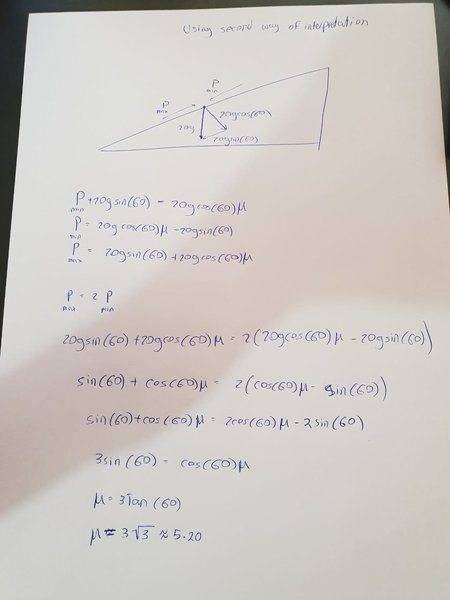 Using second way of interpretation
P min
P max
20g
20gcos(60)
P min + 20gsin(60) = 20gcos(60)μ
P min = 20gcos(60)μ - 20gsin(60)
P max = 20gsin(60) + 20gcos(60)μ
P max = 2 P min
20gsin(60) + 20gcos(60)μ = 2(20gcos(60)μ - 20gsin(60))
sin(60) + cos(60)μ = 2(cos(60)μ - sin(60))
sin(60) + cos(60)μ = 2cos(60)μ - 2sin(60)
3sin(60) = cos(60)μ
μ = 3Tan(60)
μ = 3√3 ≈ 5.20